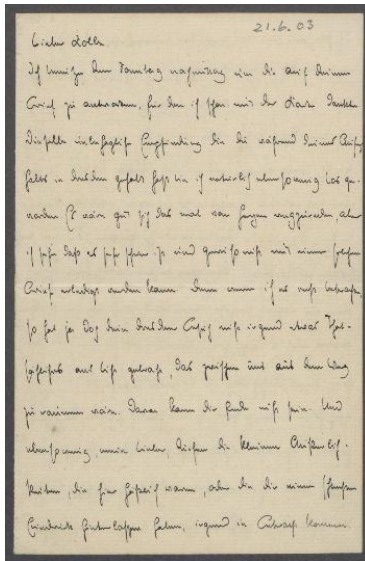 21.6.03
Lieber Kolle.
Ich benütze den Sonntag nachmittag um dir auf deinen
Brief zu antworten, für den ich schon mit der Karte dankte
Dieselbe unbehagliche Empfindung die du während deines Aufent
halts in Dresden gehabt hast bin ich natürlich ebensowenig los ge-
worden Es wäre gut sich das mal von Herzen wegzureden, aber
ich sehe daß es sehr schwer ist und gewiß nicht mit einem solchen
Brief erledigt werden kann. Denn wenn ich es recht betrachte,
so hat ja doch dein Dresdner Besuch nicht irgend etwas That-
sächliches ans Licht gebracht, das zwischen uns aus dem Weg
zu räumen wäre. Davon kann die Rede nicht sein. Und
ebensowenig, mein Lieber, dürfen die kleinen Äußerlich-
keiten, die hier häßlich waren, oder die dir einen
Eindruck hinterlassen haben, irgend in Betracht kommen.